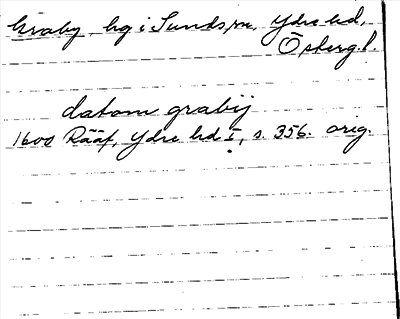 Kraby hg i Sunds sn, Ydre hd,
Österg. l.
datom grabij
1600 Rääf, Ydre hd I, s. 356. orig.